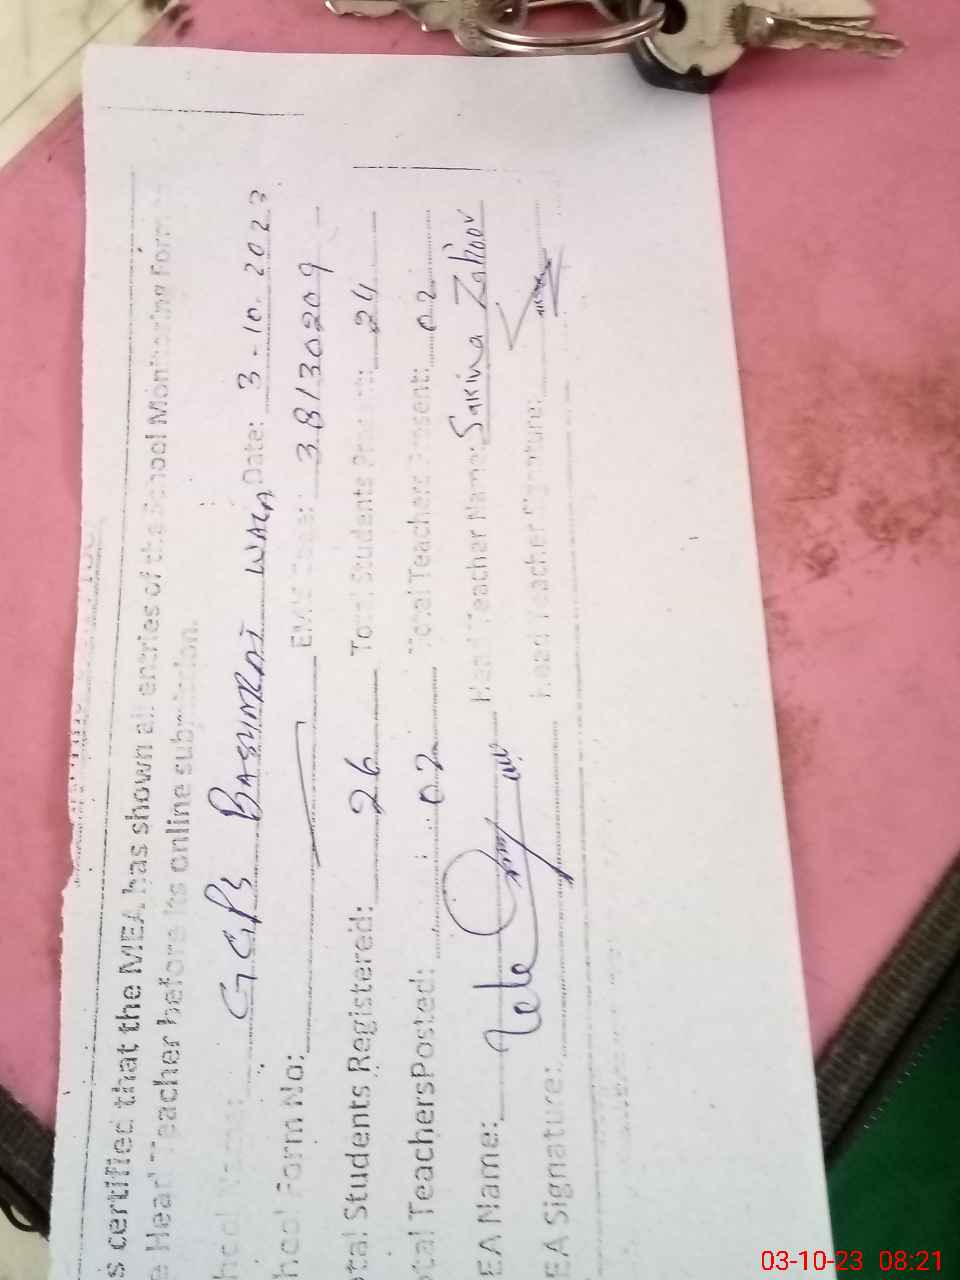 s certified that the MEA has shown all entries of the School Monitoring Form
e Head Teacher before its online submission.
GGPS BASHIRAT WALA Date: 3-10-2023
hool Form No: EMIS Code: 38130209
otal Students Registered: 26 Total Students Present: 24
otal TeachersPosted: 02 Total Teachers Present: 02
EA Name: Head Teacher Name: Sakina Zahoor
EA Signature: Head Teacher Signature:
03-10-23 08:21